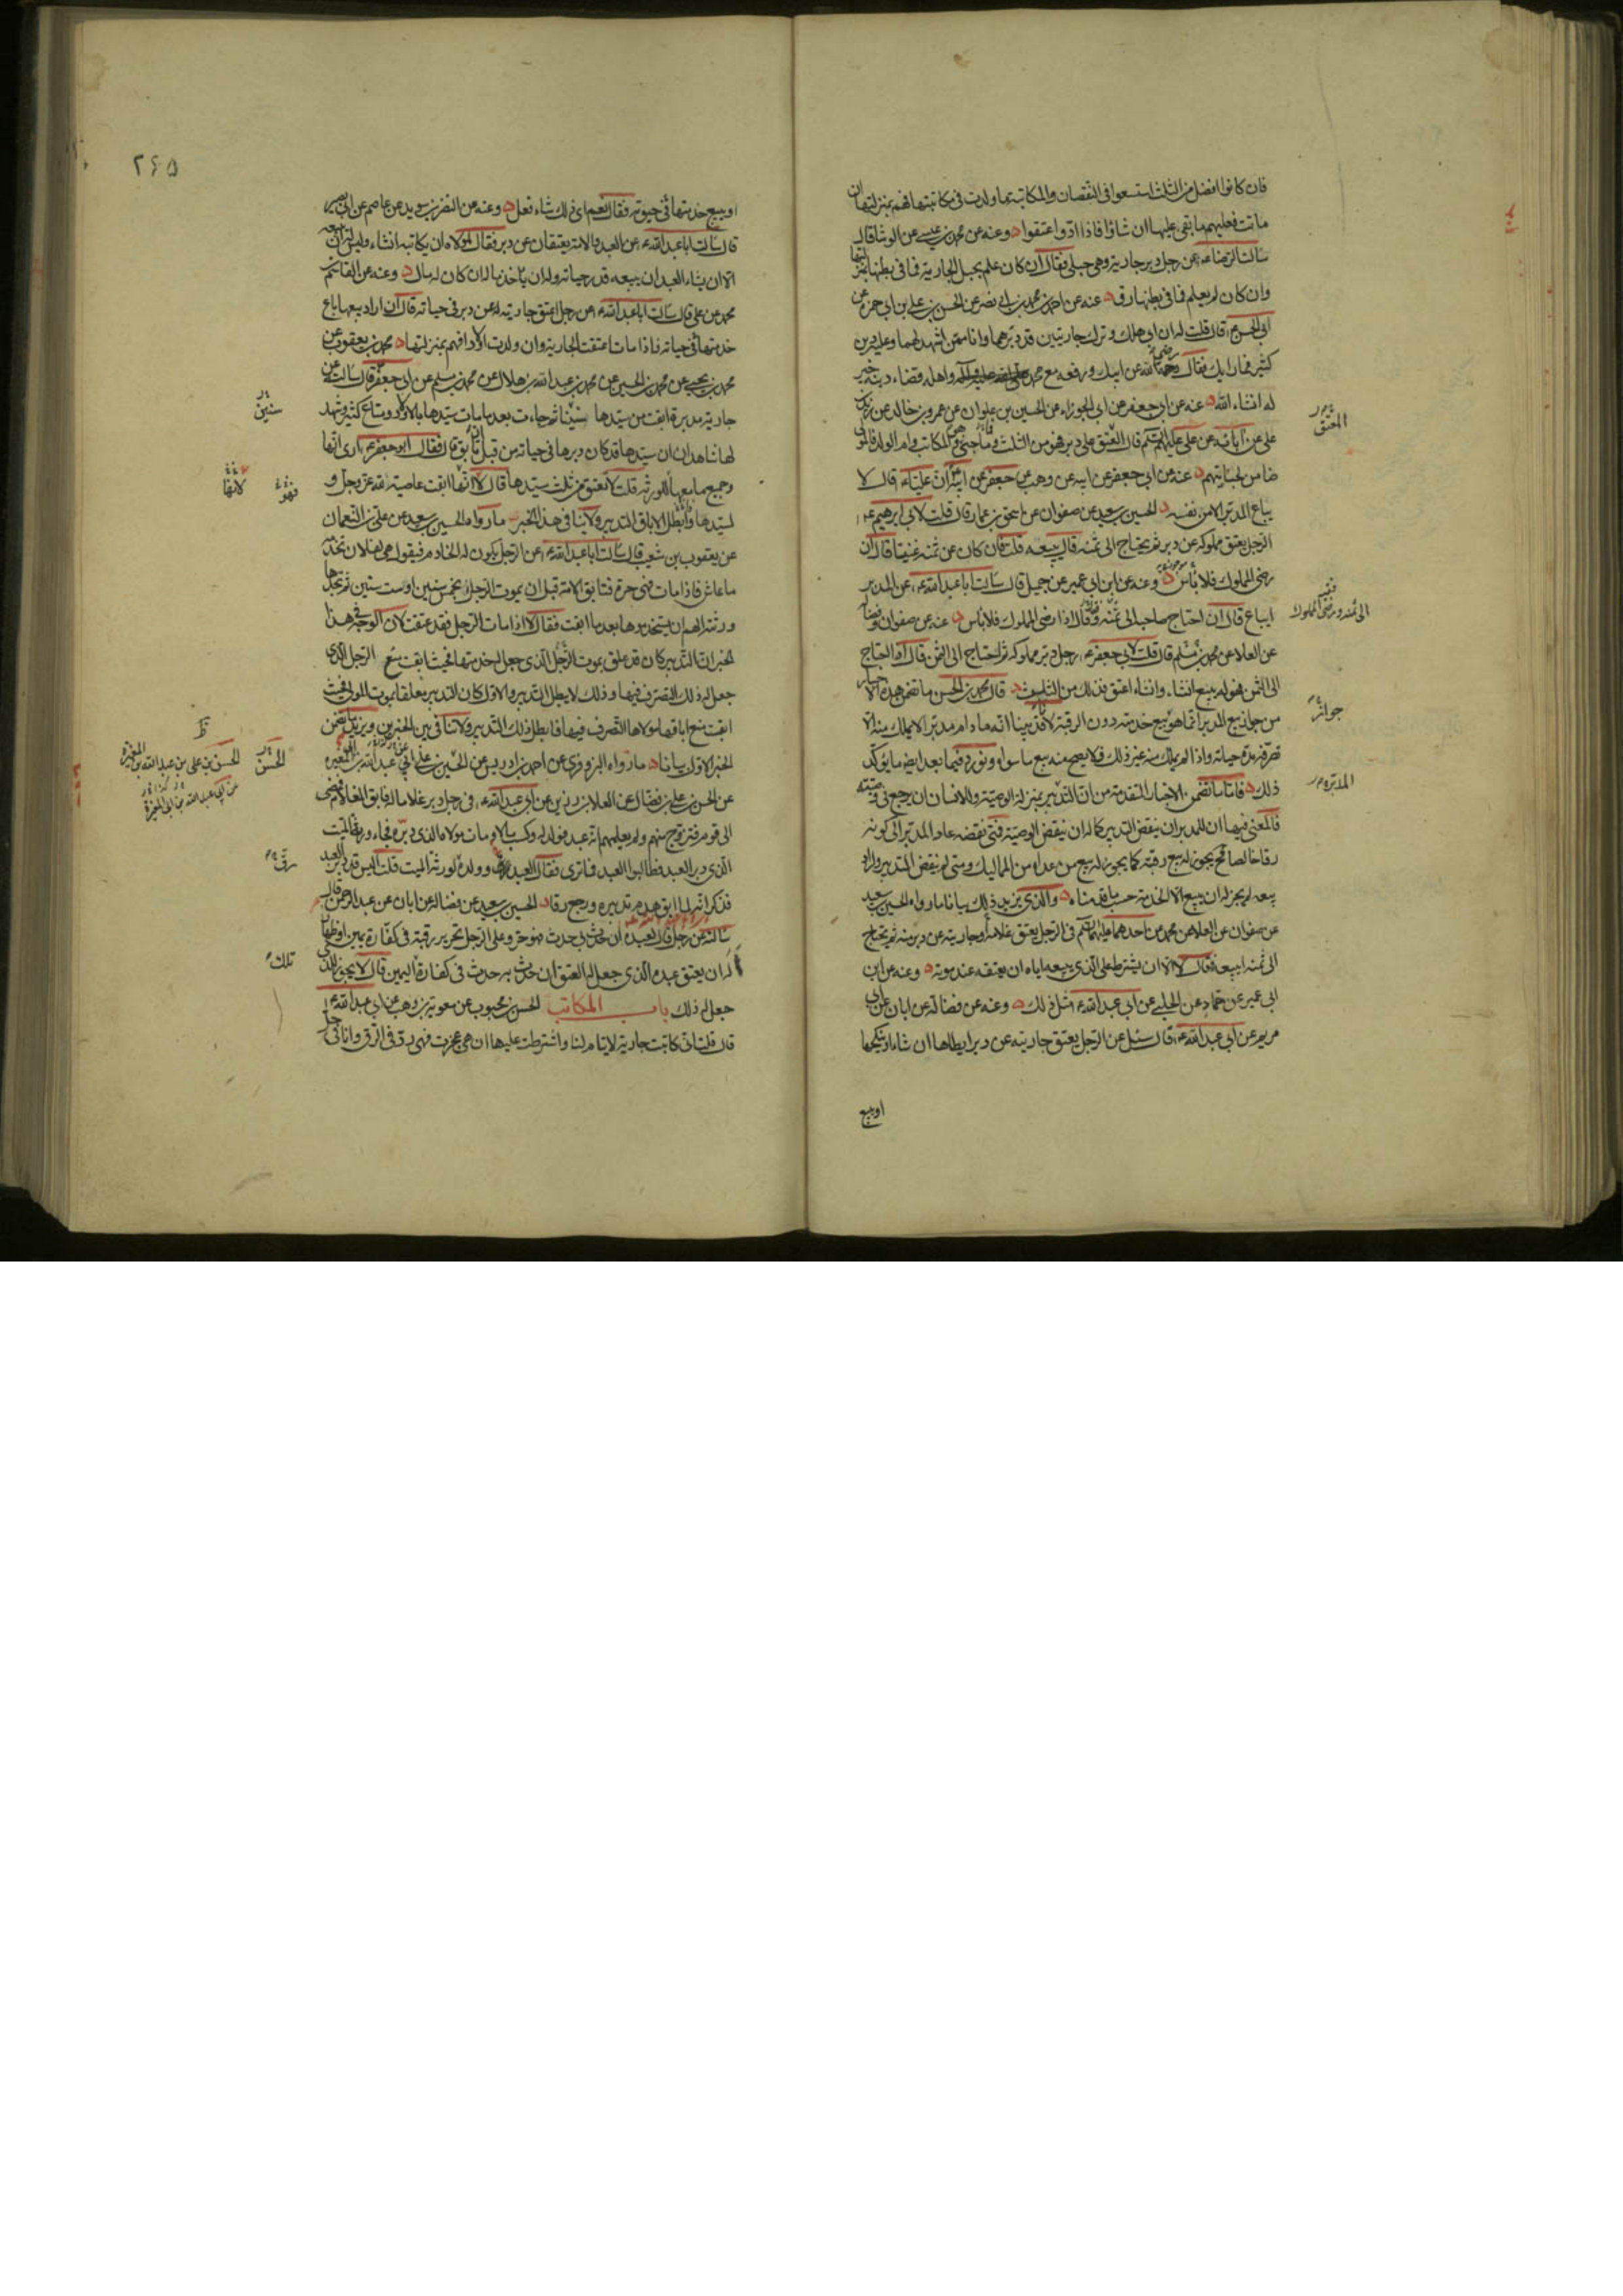 فان كانوا افضل من الثلث استسعوا فى النقصان والمكاتبة تما ولدت فى مكاتبتها فهم بمنزلتها ان
ماتت فعليهم ما بقى عليها ان شاؤا فاذا ادّوا اعتقوا وعنه عن محمد بن عيسى عن الوشا قال
سألت الرضا ع عن رجل دبر جارية وهى حبلى فقال ان كان علم بحبل الجارية فما فى بطنها بمنزلتها
وان كان لم يعلم فما فى بطنها رق عنه عن احمد بن محمد بن ابى نصر عن الحسن بن على بن ابى حمزه عن
ابى الحسن ع قال قلت له ان ابى هلك وترك جاريتين قد دبرهما وانا ممن اشهد لهما وعليه دين
كثير فما رايك فقال رضى الله عن ابيك ورفعه مع محمد صلى الله عليه وآله واهله قضاء دينه خير
له انشاء الله عنه عن ابى جعفر عن ابى الجوزاء عن الحسين بن علوان عن عمرو بن خالد عن زيد بن
على عن آبائه عن على عليهم السلم قال المعتق على دبر فهو من الثلث وما جنى هو والمكاتب وام الولد فالمولى
ضامن لجنايتهم عنه عن ابى جعفر عن ابيه عن وهب عن جعفر عن ابيه ان عليا ع قال لا
يباع المدبر الا من نفسه الحسين بن سعيد عن صفوان عن اسحق بن عمار قال قلت لابى ابرهيم ع
الرجل يعتق مملوكه عن دبر ثم يحتاج الى ثمنه قال يبيعه قلت فان كان عن ثمنه غنيا قال ان
رضى المملوك فلا بأس وعنه عن ابن ابى عمير عن جميل قال سألت ابا عبد الله ع عن المدبر
ايباع قال ان احتاج صاحبه الى ثمنه وقال اذا رضى المملوك فلا بأس عنه عن صفوان وفضاله
عن العلا عن محمد بن مسلم قال قلت لابى جعفر ع رجل دبر مملوكه ثم احتاج الى الثمن قال اذا احتاج
الى الثمن فهو له يبيع انشاء وانشاء اعتق فذلك من الثلث قال محمد بن الحسن ما تضمن هذه الاخبار
من جواز بيع المدبر انما هو بيع خدمته دون الرقبة لانا قد بينا انه ما دام مدبرا لا يملك منه الا
تصرفه مدة حياته واذا لم يملك منه غير ذلك فلا يصح منه بيع ما سواه ونورد فيما بعد ايضا ما يؤكد
ذلك فاما ما تضمن الاخبار المتقدمة من ان التدبير بمنزلة الوصية وللانسان ان يرجع فى وصيته
فالمعنى فيها ان للمدبر ان ينقض التدبير كما له ان ينقض الوصية فمتى نقضه عاد المدبر الى كونه
رقا خالصا فح يجوز له بيع رقبته كما يجوز له بيع من عداه من المماليك ومتى لم ينقض التدبير واراد
بيعه لم يجز له ان يبيع الا الخدمة حسب ما قدمناه والذى يزيد ذلك بيانا ما رواه الحسين بن سعيد
عن صفوان عن العلا عن محمد عن احدهما عليهما السلم فى الرجل يعتق غلامه او جاريته عن دبر منه ثم يحتاج
الى ثمنه ايبيعه فقال لا الا ان يشترط على الذى يبيعه اياه ان يعتقه عند موته وعنه عن ابن
ابى عمير عن حماد عن الحلبى عن ابى عبد الله ع مثل ذلك وعنه عن فضالة عن ابان عن ابى
مريم عن ابى عبد الله ع قال سئل عن الرجل يعتق جاريته عن دبر ايطاها ان شاء او ينكحها
او يبيع
المعتق
الى ثمنه ورضى المملوك
جواز
المدبر
٢٦٥
او يبيع خدمتها فى حيوته فقال نعم اى ذلك شاء فعل وعنه عن النضر بن سويد عن عاصم عن ابى بصير
قال سألت ابا عبد الله ع عن العبد والامة يعتقان عن دبر فقال لمولاه ان يكاتبه انشاء وليس له ان يبيعه
الا ان يشاء العبد ان يبيعه قدر حياته وله ان ياخذ ماله ان كان له مال وعنه عن القاسم بن
محمد عن على قال سألت ابا عبد الله ع عن رجل اعتق جارية له عن دبر فى حياته قال ان اراد بيعها باع
خدمتها فى حياته فاذا مات اعتقت الجارية وان ولدت اولادا فهم بمنزلتها محمد بن يعقوب عن
محمد بن يحيى عن محمد بن الحسين عن محمد بن عبد الله بن هلال عن محمد بن مسلم عن ابى جعفر ع قال سألته عن
جارية مدبرة ابقت من سيدها سنينا ثم جاءت بعد ما مات سيدها باولاد ومتاع كثير وشهد
لها شاهدان ان سيدها قد كان دبرها فى حياته من قبل ان تابق قال فقال ابو جعفر ع ارى انها
وجميع ما معها للورثه قلت لا تعتق من ثلث سيدها قال لا انها ابقت عاصية لله عز وجل و
لسيدها وابطل الاباق التدبير ولا ينافى هذا الخبر ما رواه الحسين بن سعيد عن على بن النعمان
عن يعقوب بن شعيب قال سألت ابا عبد الله ع عن الرجل يكون له الخادم فيقول هى لفلان تخدمه
ما عاش فاذا مات فهى حرة فتابق الامة قبل ان يموت الرجل بخمس سنين او ست سنين ثم يجدها
ورثته الهم ان يستخدموها بعد ما ابقت فقال لا اذا مات الرجل فقد عتقت لان الوجه فى هذا
الخبر ان التدبير كان قد علق بموت الرجل الذى جعل له خدمتها فحيث ابقت منع الرجل الذى
جعل له ذلك التصرف فيها وذلك لا يبطل التدبير والاول كان التدبير معلقا بموت المولى فحيث
ابقت منع اباقها مولاها التصرف فيها فابطل ذلك التدبير ولا تنافى بين الخبرين ويزيد ما تضمن
الخبر الاول بيانا ما رواه البزوفرى عن احمد بن ادريس عن الحسين بن على ابى عبد الله بن المغيره
عن الحسن بن على بن فضال عن العلا بن رزين عن ابى عبد الله ع فى رجل دبر غلاما له فابق الغلام فمضى
الى قوم فتزوج منهم ولم يعلمهم انه عبد فولد له وكسب مالا ومات مولاه الذى دبره فجاء ورثة الميت
الذى دبر العبد فطالبوا العبد فما ترى فقال العبد وولده لورثة الميت قلت اليس قد دبر العبد
فذكر انه لما ابق هدم تدبيره ورجع رقا الحسين بن سعيد عن فضاله عن ابان عن عبد الرحمن قال
سألته عن رجل قال لعبده ان حدث بى حدث فهو حر وعلى الرجل تحرير رقبة فى كفارة يمين او ظهار
له ان يعتق عبده الذى جعل له العتق ان حدث به حدث فى كفارة اليمين قال لا يجوز للذى
جعل له ذلك باب المكاتب الحسن بن محبوب عن معوية بن وهب عن ابى عبد الله ع
قال قلت انى كاتبت جارية لايتام لنا واشترطت عليها ان هى عجزت فهى رد فى الرق وانا فى حل
سنين
فهو
لابقا
الحسن
الحسن بن على بن عبد الله بن المغيرة
عن ابى عبد الله بن ابى المغيرة
رق
تلك